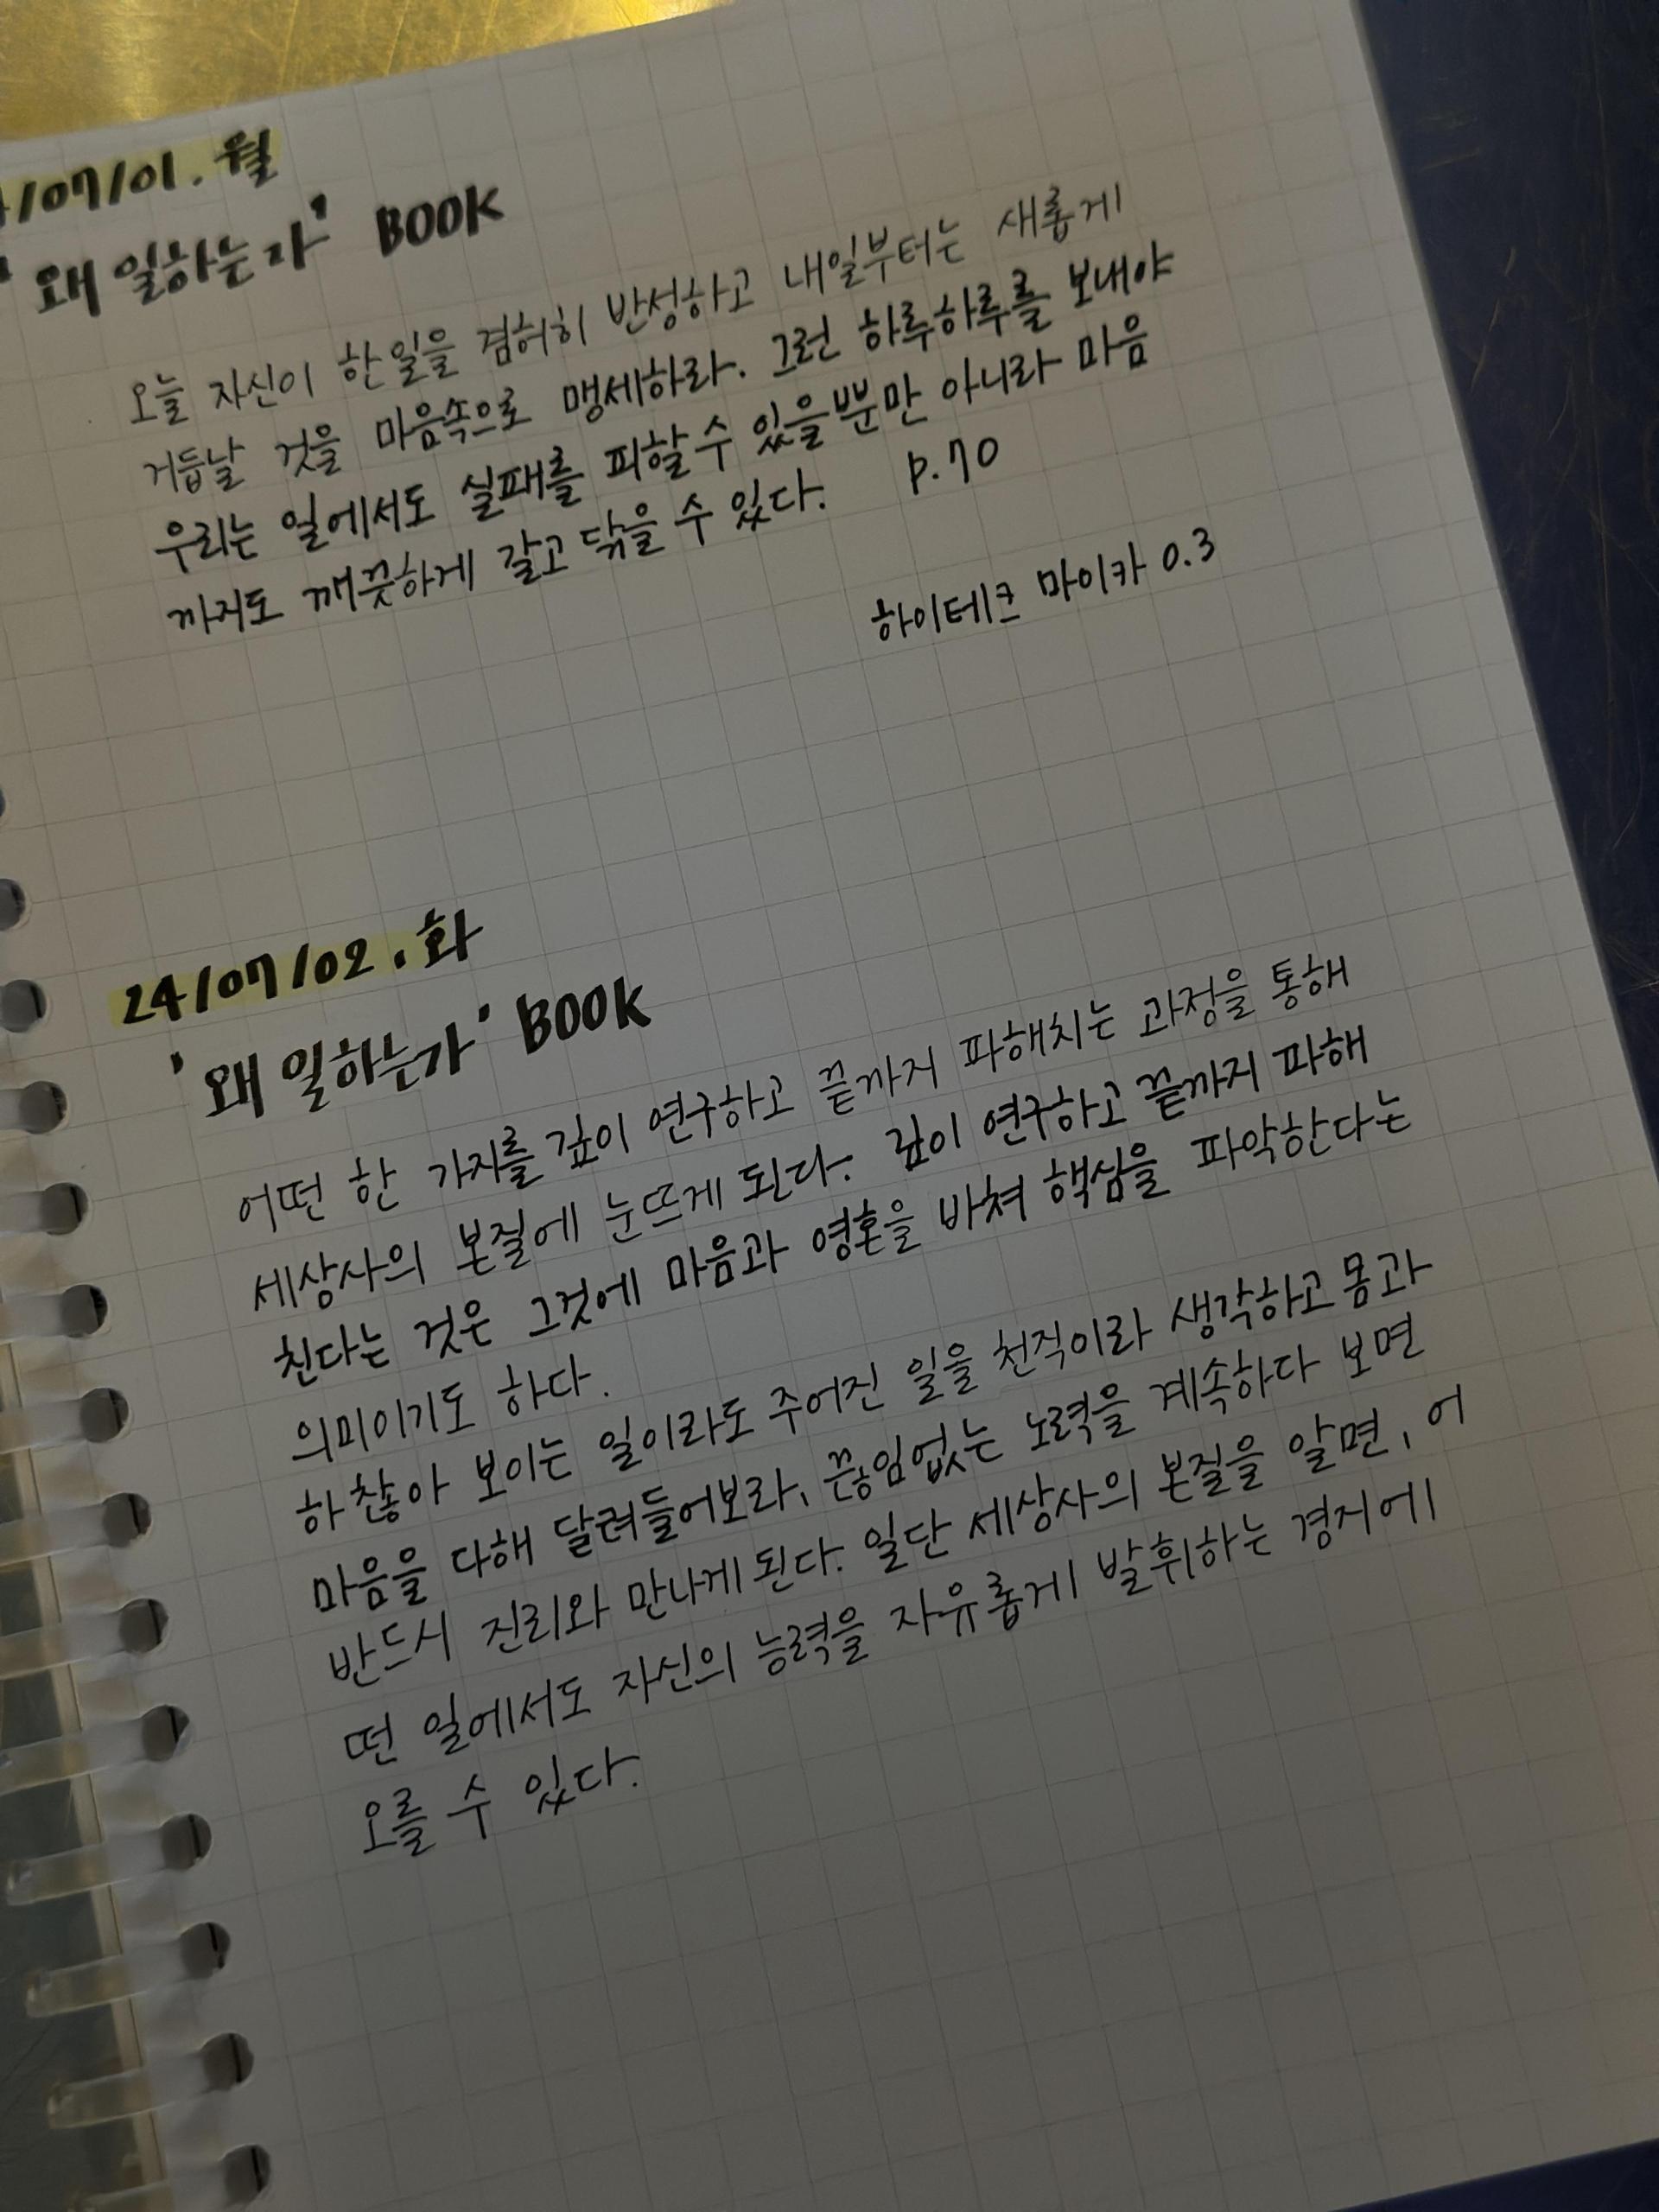 /07/01.월
'왜 일하는가' BOOK
오늘 자신이 한일을 겸허히 반성하고 내일부터는 새롭게
거듭날 것을 마음속으로 맹세하라. 그런 하루하루를 보내야
우리는 일에서도 실패를 피할수 있을뿐만 아니라 마음
까지도 깨끗하게 갈고 닦을 수 있다. P.70
하이테크 마이카 0.3
24/07/02.화
'왜 일하는가' BOOK
어떤 한 가지를 깊이 연구하고 끝까지 파해치는 과정을 통해
세상사의 본질에 눈뜨게 된다. 깊이 연구하고 끝까지 파해
친다는 것은 그것에 마음과 영혼을 바쳐 핵심을 파악한다는
의미이기도 하다.
하찮아 보이는 일이라도 주어진 일을 천직이라 생각하고 몸과
마음을 다해 달려들어보라, 끊임없는 노력을 계속하다 보면
반드시 진리와 만나게 된다. 일단 세상사의 본질을 알면, 어
떤 일에서도 자신의 능력을 자유롭게 발휘하는 경지에
오를 수 있다.